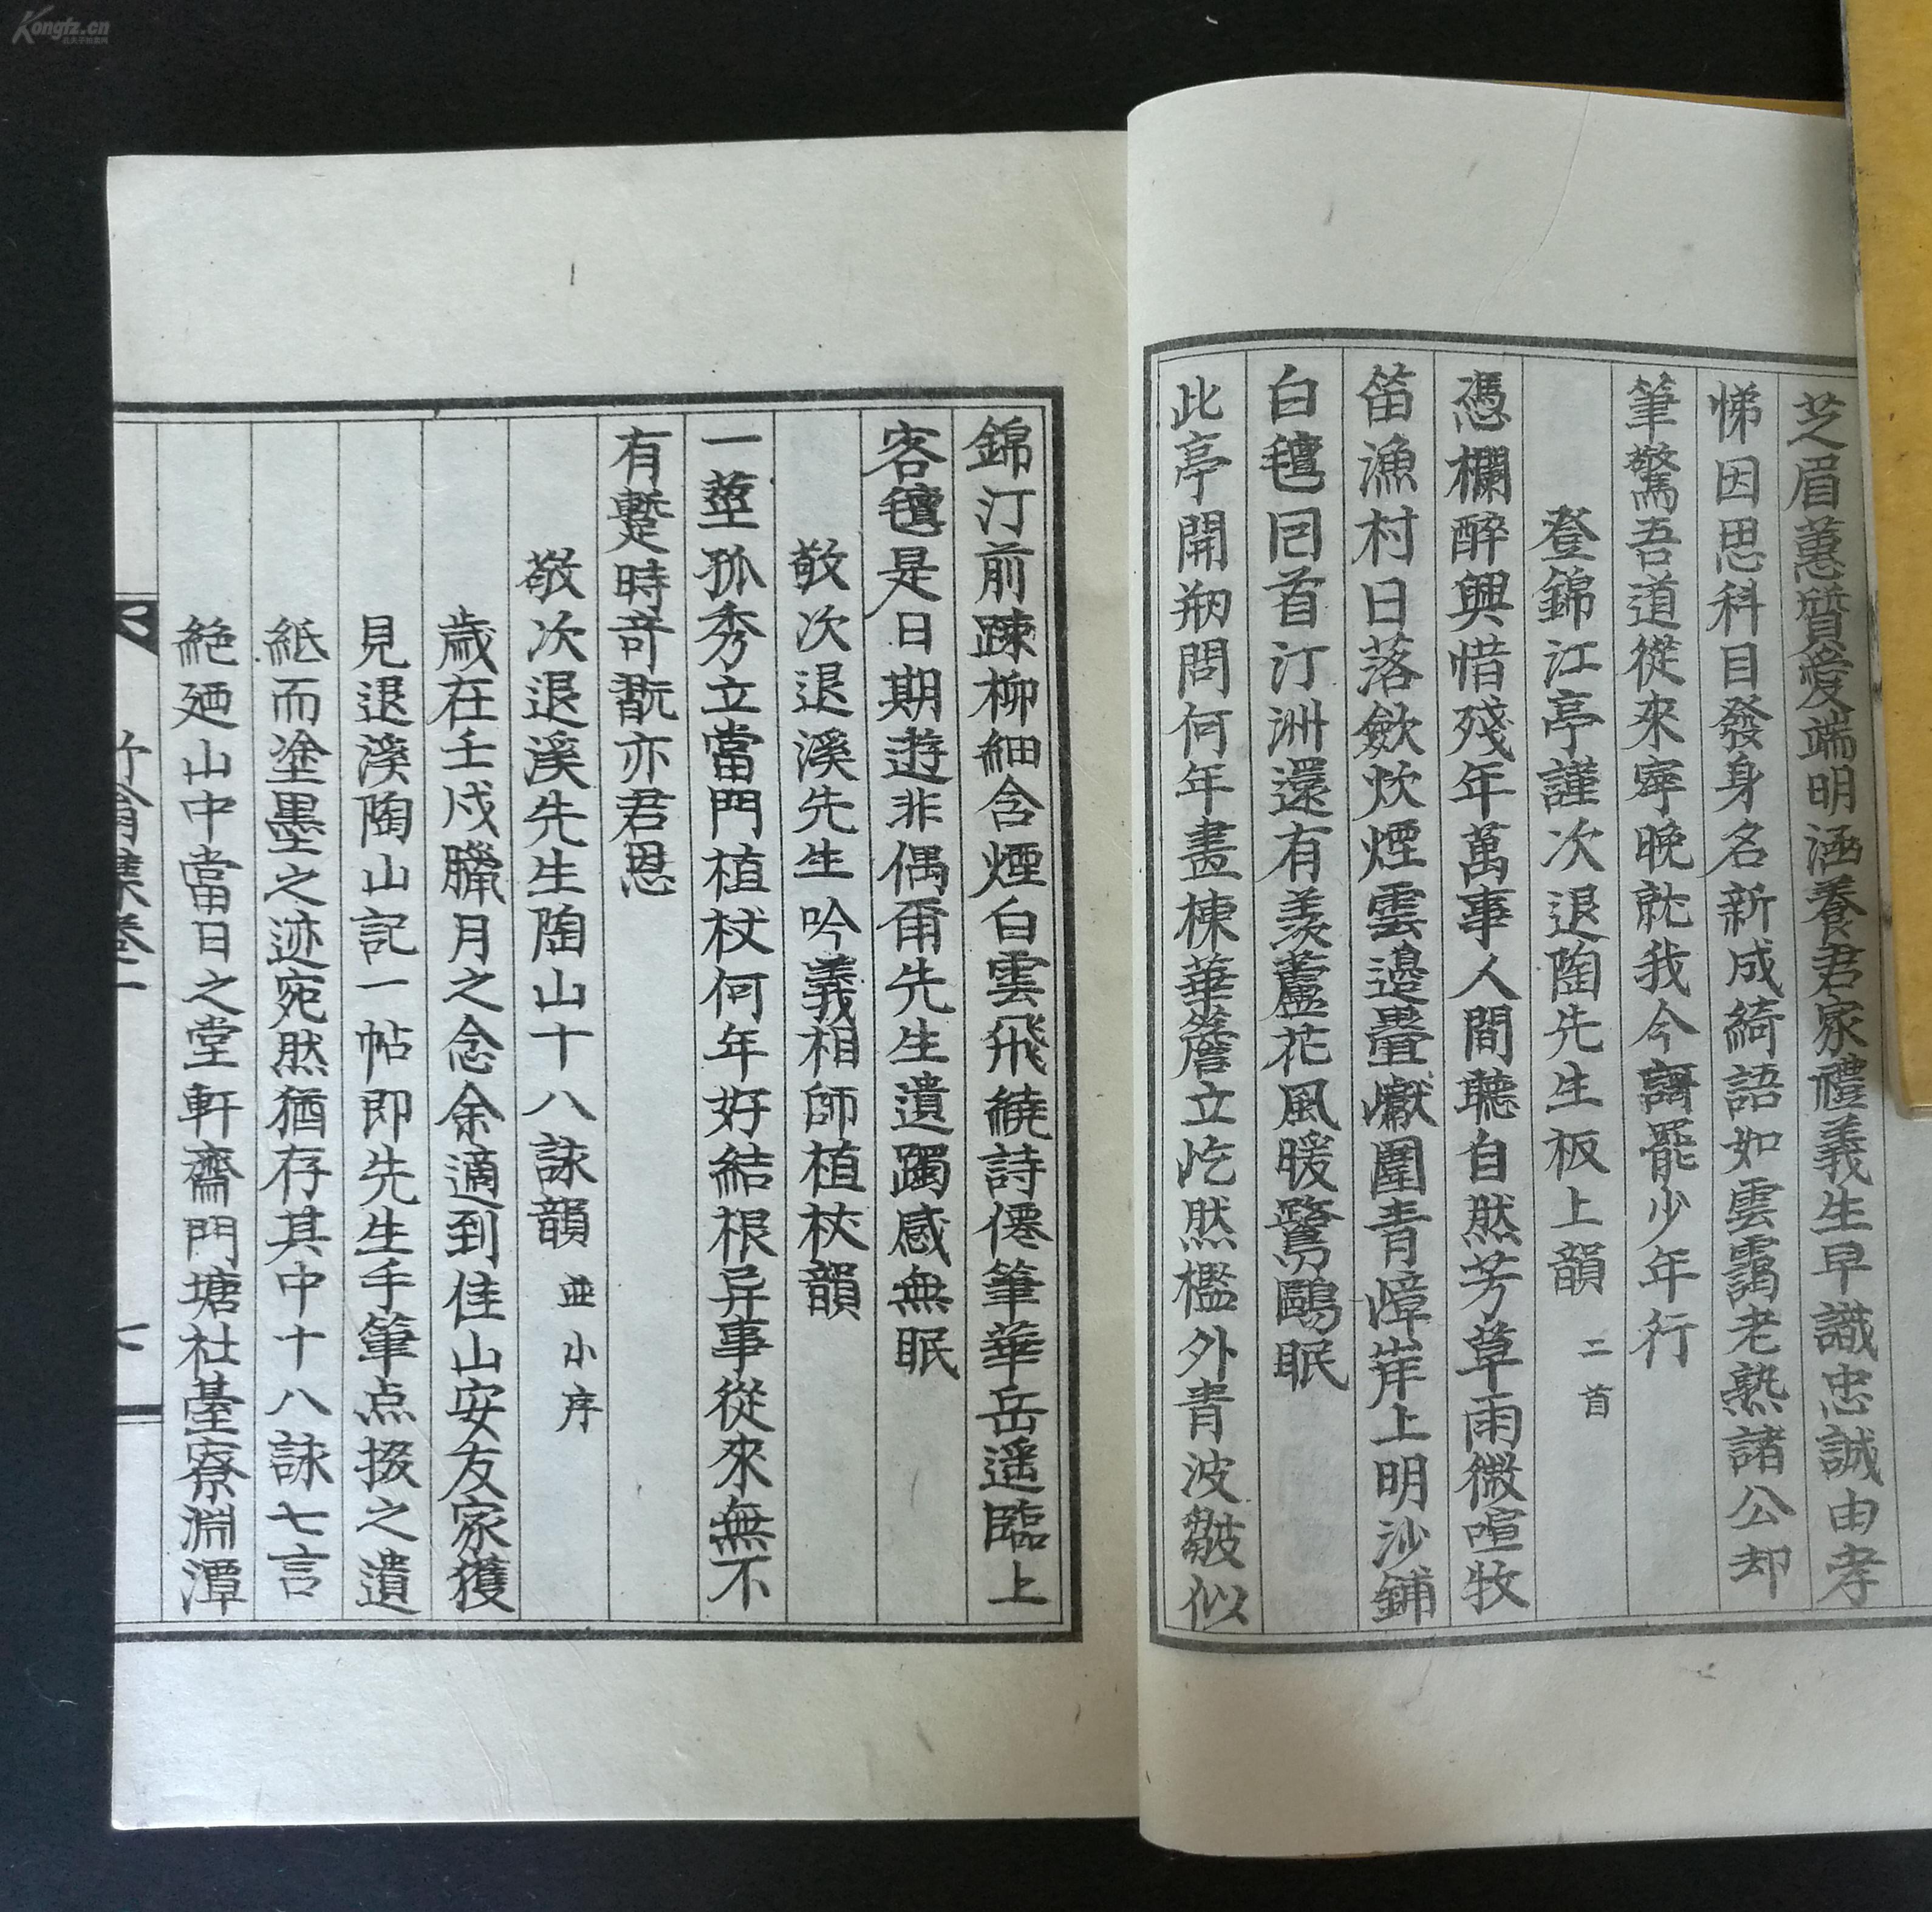 芝眉蕙質愛端明涵養君家禮義生早識忠誠由孝
悌因思科目發身名新成綺語如雲靄老熟諸公却
筆驚吾道從來寧晚就我今謌罷少年行
登錦江亭謹次退陶先生板上韻 二首
憑欄醉興惜殘年萬事人間聽自然芳草雨微喧牧
笛漁村日落歛炊煙雲邊疊巘圍青嶂岸上明沙鋪
白氊回首汀洲還有羡蘆花風暖鷺鷗眠
此亭開刱問何年畫棟華簷立屹然檻外青波皺似
錦汀前踈柳細含煙白雲飛繞詩僊筆華岳遥臨上
客氊是日期遊非偶甭先生遺躅感無眠
敬次退溪先生吟義相師植杖韻
一莖孤秀立當門植杖何年好結根异事從來無不
有蹔時竒翫亦君恩
敬次退溪先生陶山十八詠韻 並小序
歲在壬戌臘月之念余適到佳山安友家獲
見退溪陶山記一帖即先生手筆点掇之遺
紙而塗墨之迹宛然猶存其中十八詠七言
絶廼山中當日之堂軒齋門塘社臺寮淵潭
Kongfz.cn